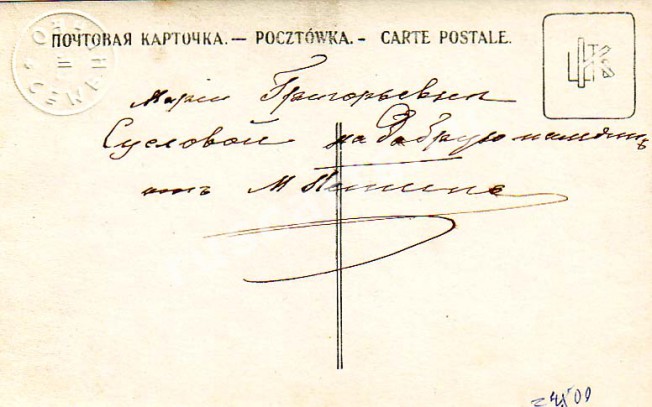 ПОЧТОВАЯ КАРТОЧКА. — POCZTÓWKA. - CARTE POSTALE.
Маріи Григорьевнѣ
Сусловой на добрую память
отъ М